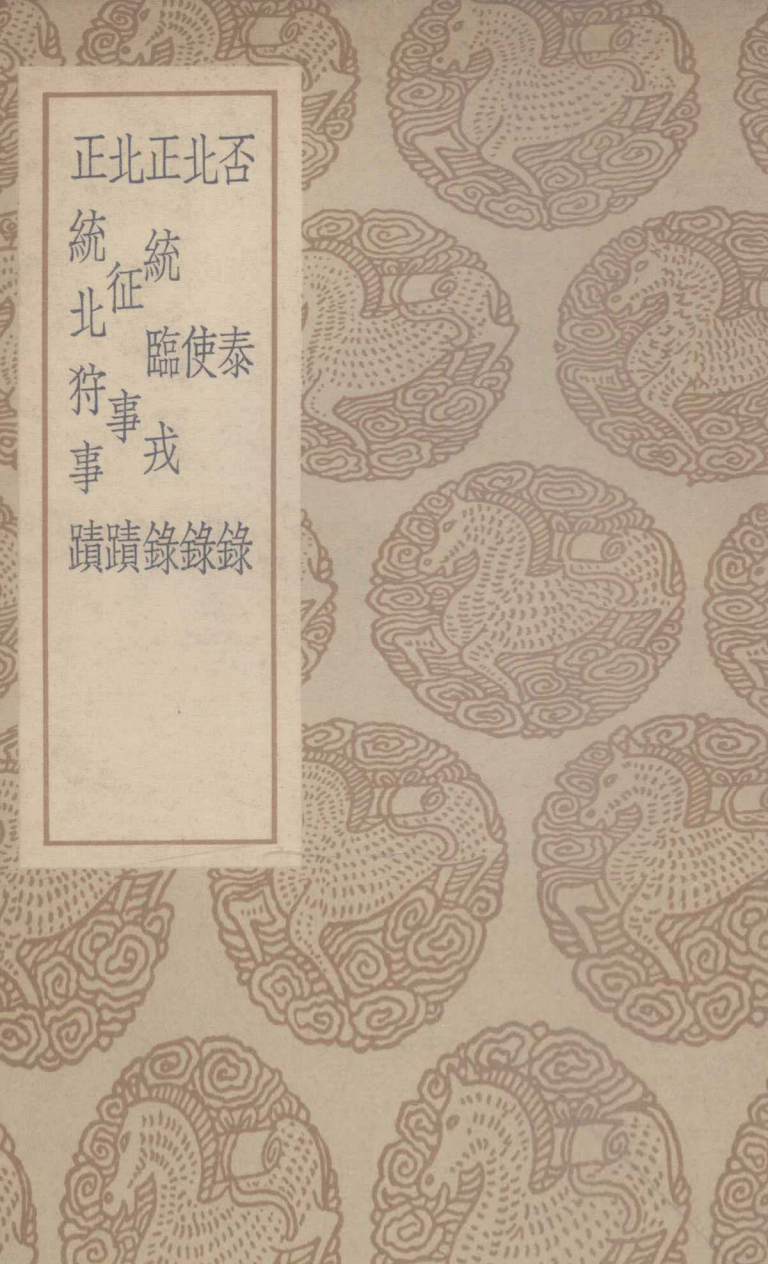 否泰錄
北使錄
正統臨戎錄
北征事蹟
正統北狩事蹟